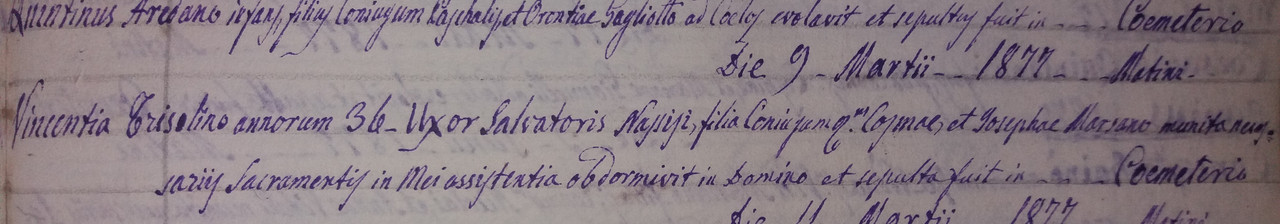 Quintinus Aredano infans, filius Coniugum Paschalis et Orontiae Gagliotto ad Coelos evolavit et sepultus fuit in _ _ _ Coemeterio
Die 9 _ Martii _ _ 1877 _ _ _ Matini _
Vincentia Trisolino annorum 36 _ Uxor Salvatoris Nassisi, filia Coniugum q.m Cosmae, et Josephae Marsano munita neces=
sariis Sacramentis in Mei assistentia obdormivit in Domino et sepulta fuit in _ _ _ Coemeterio
Die 11 Martii 1877 Matini